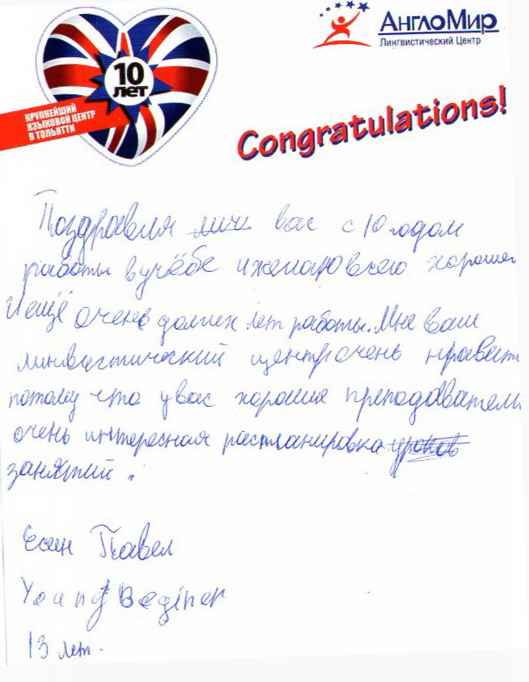 10
лет
КРУПНЕЙШИЙ
ЯЗЫКОВОЙ ЦЕНТР
В ТОЛЬЯТТИ
АнглоМир
Лингвистический Центр
Congratulations!
Поздравля вас с 10 годом
работы в учёбе и желаю всего хорошег
И ещё очень долгих лет работы. Мне ваш
линвистический центр очень нравит
потому что у вас хорошие преподаватель
очень интересная распланировка уроков
занятий.
Есин Павел
Young Beginer
13 лет.